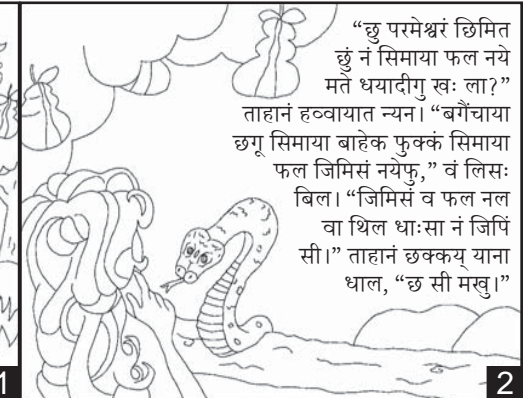 “छु परमेश्वरं छिमित
छुं नं सिमाया फल नये
मते धयादीगु खः ला?”
ताहानं हव्वायात न्यन। “बगैंचाया
छगू सिमाया बाहेक फुक्कं सिमाया
फल जिमिसं नयेफु,” वं लिसः
बिल। “जिमिसं व फल नल
वा थिल धाःसा नं जिपिं
सी।” ताहानं छक्कय् याना
धाल, “छ सी मखु।”
1
2